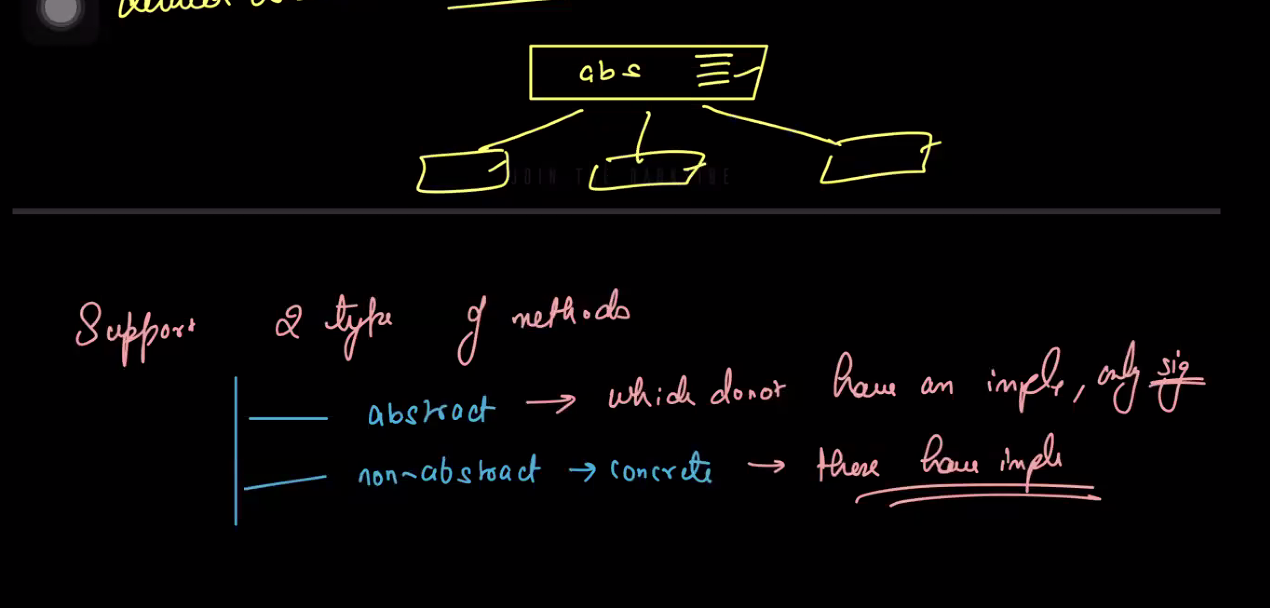 abs
JOIN THE DARKSIDE
Support 2 type of methods
abstract → which donot have an imple, only sig
non-abstract → concrete → these have imple